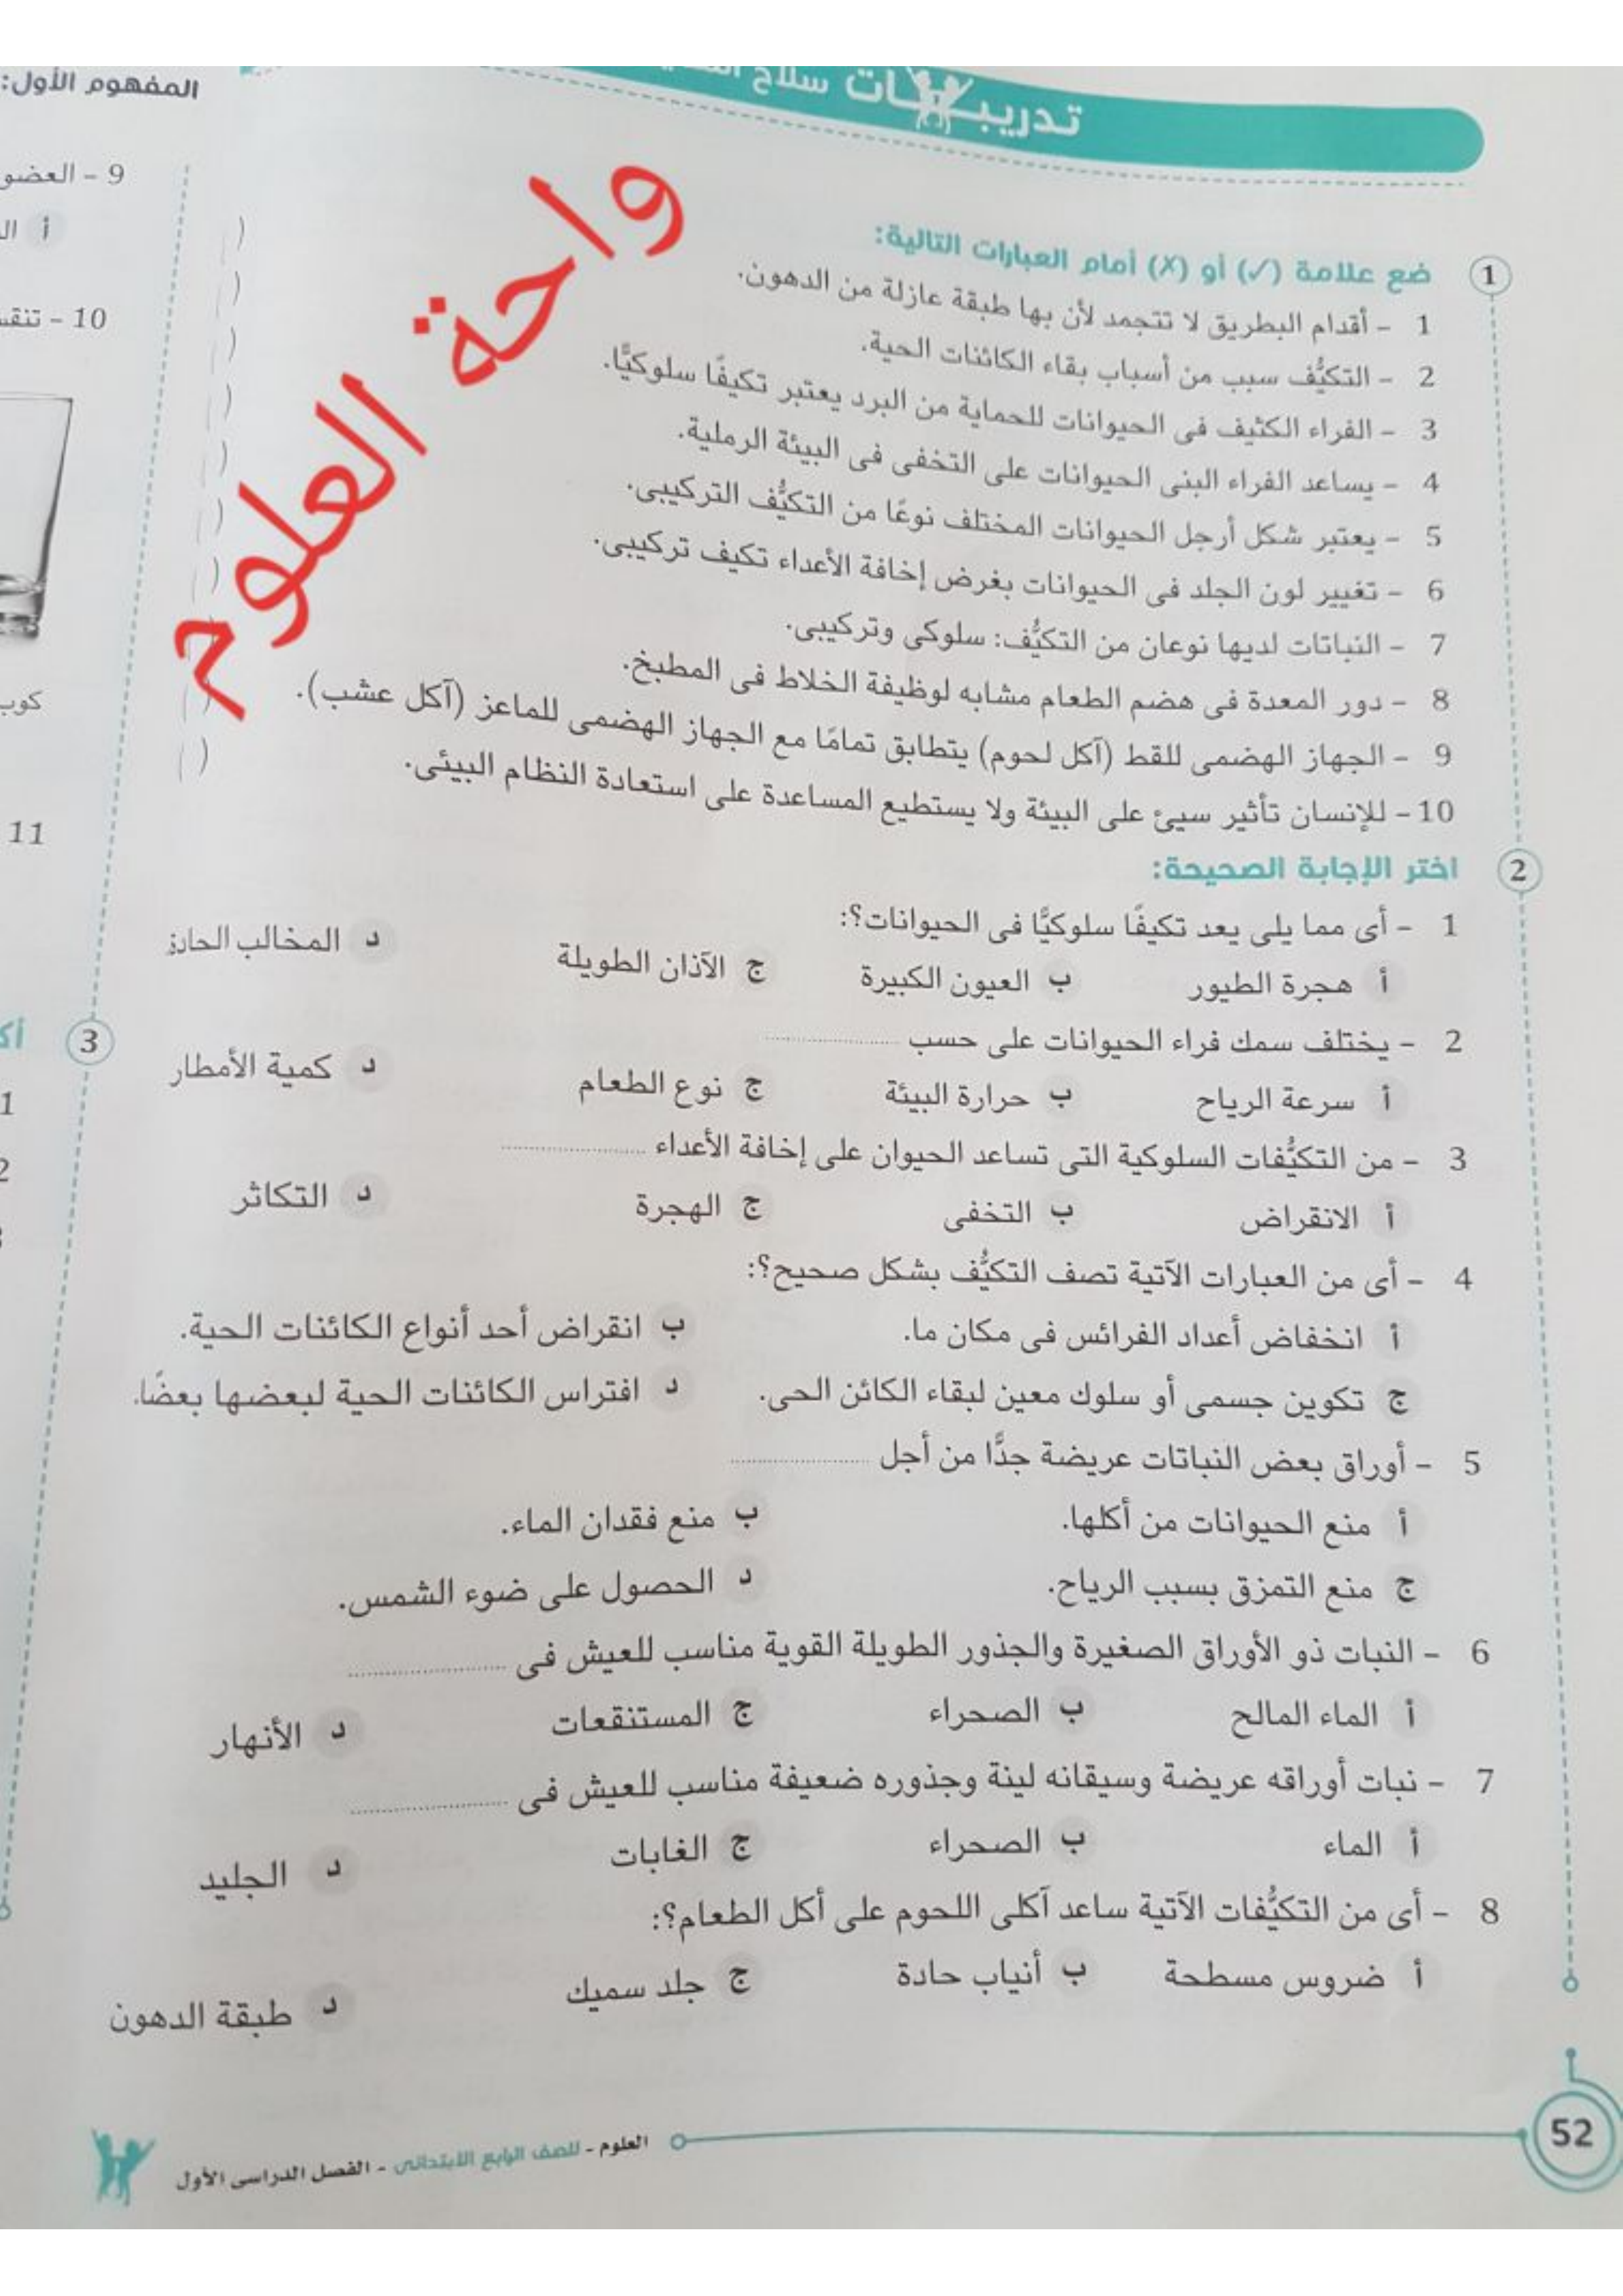 تدريبات سلاح
واحة العلوم
1 ضع علامة (✓) أو (X) أمام العبارات التالية:
1 - أقدام البطريق لا تتجمد لأن بها طبقة عازلة من الدهون. ( )
2 - التكيُّف سبب من أسباب بقاء الكائنات الحية. ( )
3 - الفراء الكثيف فى الحيوانات للحماية من البرد يعتبر تكيفًا سلوكيًّا. ( )
4 - يساعد الفراء البنى الحيوانات على التخفى فى البيئة الرملية. ( )
5 - يعتبر شكل أرجل الحيوانات المختلف نوعًا من التكيُّف التركيبى. ( )
6 - تغيير لون الجلد فى الحيوانات بغرض إخافة الأعداء تكيف تركيبى. ( )
7 - النباتات لديها نوعان من التكيُّف: سلوكى وتركيبى. ( )
8 - دور المعدة فى هضم الطعام مشابه لوظيفة الخلاط فى المطبخ. ( )
9 - الجهاز الهضمى للقط (آكل لحوم) يتطابق تمامًا مع الجهاز الهضمى للماعز (آكل عشب). ( )
10 - للإنسان تأثير سيئ على البيئة ولا يستطيع المساعدة على استعادة النظام البيئى. ( )
2 اختر الإجابة الصحيحة:
1 - أى مما يلى يعد تكيفًا سلوكيًّا فى الحيوانات؟:
أ هجرة الطيور ب العيون الكبيرة ج الآذان الطويلة د المخالب الحادة
2 - يختلف سمك فراء الحيوانات على حسب ....................
أ سرعة الرياح ب حرارة البيئة ج نوع الطعام د كمية الأمطار
3 - من التكيُّفات السلوكية التى تساعد الحيوان على إخافة الأعداء ....................
أ الانقراض ب التخفى ج الهجرة د التكاثر
4 - أى من العبارات الآتية تصف التكيُّف بشكل صحيح؟:
أ انخفاض أعداد الفرائس فى مكان ما. ب انقراض أحد أنواع الكائنات الحية.
ج تكوين جسمى أو سلوك معين لبقاء الكائن الحى. د افتراس الكائنات الحية لبعضها بعضًا.
5 - أوراق بعض النباتات عريضة جدًّا من أجل ....................
أ منع الحيوانات من أكلها. ب منع فقدان الماء.
ج منع التمزق بسبب الرياح. د الحصول على ضوء الشمس.
6 - النبات ذو الأوراق الصغيرة والجذور الطويلة القوية مناسب للعيش فى ....................
أ الماء المالح ب الصحراء ج المستنقعات د الأنهار
7 - نبات أوراقه عريضة وسيقانه لينة وجذوره ضعيفة مناسب للعيش فى ....................
أ الماء ب الصحراء ج الغابات د الجليد
8 - أى من التكيُّفات الآتية ساعد آكلى اللحوم على أكل الطعام؟:
أ ضروس مسطحة ب أنياب حادة ج جلد سميك د طبقة الدهون
52
العلوم - للصف الرابع الابتدائى - الفصل الدراسى الأول
المفهوم الأول:
9 - العضو
أ
10 -
كوب
11
3
1
2